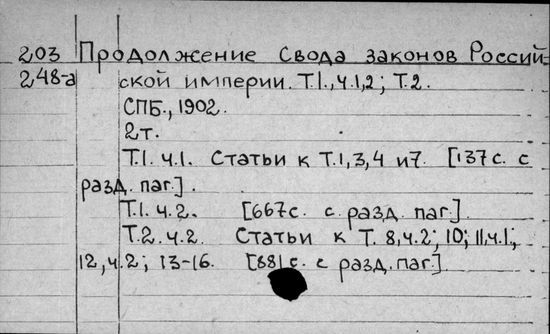 203 Продолжение Свода законов Россий-
248-а ской империи. Т.1., ч.1,2; Т.2.
СПБ., 1902.
2т.
Т.1. ч.1. Статьи к Т.1,3,4 и 7. [137 с. с
разд. паг.].
Т.1. ч.2. [667с. с. разд. паг.].
Т.2. ч.2. Статьи к Т. 8, ч.2; 10; 11, ч.1.;
12, ч.2; 13-16. [881 с. с разд. паг.].